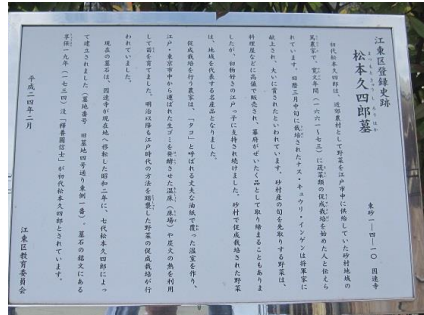 江東区登録史跡
松本久四郎墓
まつもときゅうしろうはか
東砂一―四―一〇 因速寺
初代松本久四郎は、近郊農村として野菜を江戸市中に供給していた砂村地域の
篤農家で、寛文年間(一六六一～七三)に蔬菜類の促成栽培を始めた人と伝えら
れています。旧暦三月中旬に栽培されたナス・キュウリ・インゲンは将軍家に
献上され、大いに賞されたといわれています。砂村産の旬を先取りする野菜は、
料理屋などに高値で販売され、幕府がぜいたく品として取り締まることもありま
したが、初物好きの江戸っ子に支持され続けました。砂村で促成栽培された野菜
は、地域を代表する名産品となりました。
促成栽培を行う農家は、「タコ」と呼ばれる丈夫な油紙で覆った温室を作り、
江戸・東京市中から運ばれた生ゴミを発酵させた温床(床場)や炭火の熱を利用
して苗を育てました。明治以降も江戸時代の方法を踏襲した野菜の促成栽培が行
われていました。
現在の墓石は、因速寺が現在地へ移転した昭和二年に、七代松本久四郎によっ
て建立されました(墓地番号 旧墓地四号通り東側一番)。墓石の銘文にある
享保一九年(一七三四)没「釋善園信士」が初代松本久四郎とされています。
平成二四年二月
江東区教育委員会